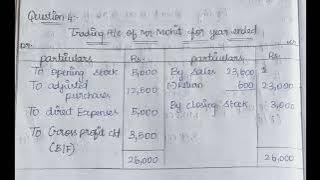 Question 4:-
Trading A/c of Mr. Mohit for year ended
Dr. cr.
particulars Rs. particulars Rs.
To opening stock 5,000 By sales 23,600
To adjusted (-) Return 600 23,000
purchases 12,500 By closing stock 3,000
To direct Expenses 5,000
To Gross profit c/d 3,500
(B/F)
26,000 26,000